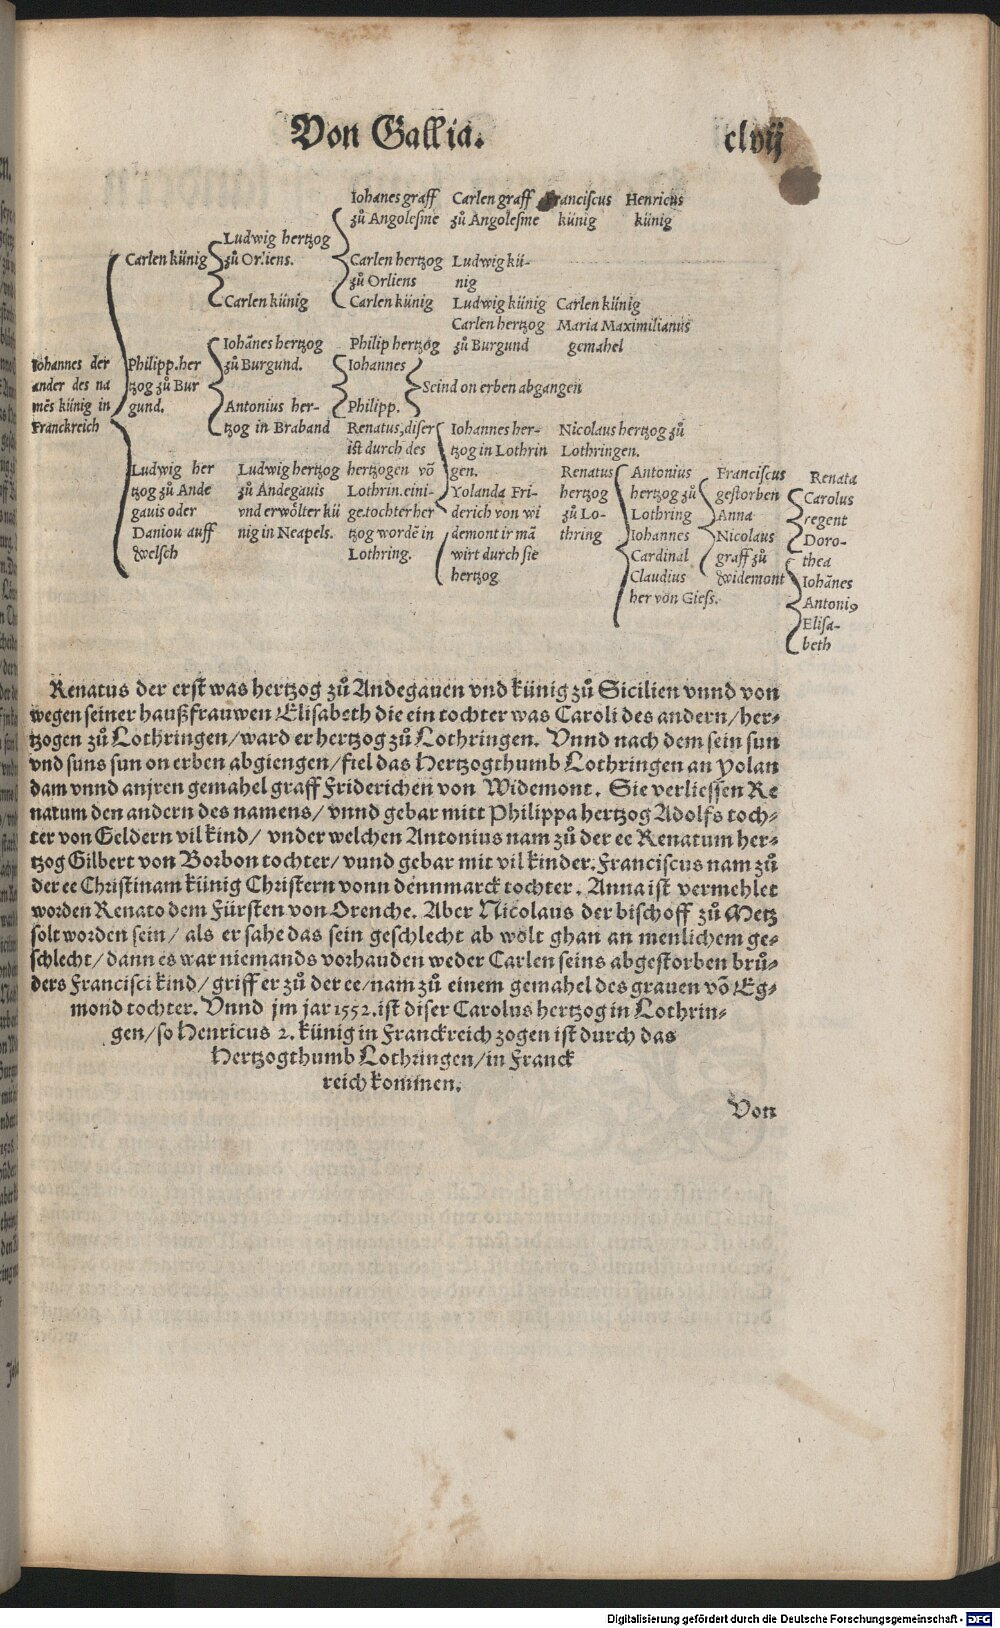 Von Gallia. clvij
Iohanes graff Carlen graff Franciscus Henricus
zů Angolesme zů Angolesme künig künig
Ludwig hertzog
Carlen künig zů Orliens. Carlen hertzog Ludwig kü-
zů Orliens nig
Carlen künig Carlen künig Ludwig künig Carlen künig
Carlen hertzog Maria Maximilianus
Iohānes hertzog Philip hertzog zů Burgund gemahel
Iohannes der Philipp. her zů Burgund. Iohannes
ander des na tzog zů Bur Seind on erben abgangen
mēs künig in gund. Antonius her- Philipp.
Franckreich tzog in Braband Renatus, diser Iohannes her- Nicolaus hertzog zů
ist durch des tzog in Lothrin Lothringen.
Ludwig her Ludwig hertzog hertzogen vō gen. Renatus Antonius Franciscus Renata
tzog zů Ande zů Andegauis Lothrin. eini- Yolanda Fri- hertzog hertzog zů gestorben Carolus
gauis oder vnd erwölter kü ge.tochter her derich von wi zů Lo- Lothring Anna regent
Daniou auff nig in Neapels. tzog wordē in demont ir mā thring Iohannes Nicolaus Doro-
welsch Lothring. wirt durch sie Cardinal graff zů thea
hertzog Claudius widemont Iohānes
her von Giess. Antoni9
Elisa-
beth
Renatus der erst was hertzog zů Andegauen vnd künig zů Sicilien vnnd von
wegen seiner haußfrauwen Elisabeth die ein tochter was Caroli des andern/ her-
tzogen zů Lothringen/ ward er hertzog zů Lothringen. Vnnd nach dem sein sun
vnd suns sun on erben abgiengen/ fiel das Hertzogthumb Lothringen an Yolan
dam vnnd anjren gemahel graff Friderichen von Widemont. Sie verliessen Re
natum den andern des namens/ vnnd gebar mitt Philippa hertzog Adolfs toch-
ter von Geldern vil kind/ vnder welchen Antonius nam zů der ee Renatum her-
tzog Gilbert von Borbon tochter/ vund gebar mit vil kinder. Franciscus nam zů
der ee Christinam künig Christern vonn dennmarck tochter. Anna ist vermehlet
worden Renato dem Fürsten von Orenche. Aber Nicolaus der bischoff zů Metz
solt worden sein/ als er sahe das sein geschlecht ab wolt ghan an menlichem ge-
schlecht/ dann es war niemands vorhauden weder Carlen seins abgestorben brů-
ders Francisci kind/ griff er zů der ee/ nam zů einem gemahel des grauen vō Eg-
mond tochter. Vnnd jm jar 1552. ist diser Carolus hertzog in Lothrin-
gen/ so Henricus 2. künig in Franckreich zogen ist durch das
Hertzogthumb Lothringen/ in Franck
reich kommen.
Von
Digitalisierung gefördert durch die Deutsche Forschungsgemeinschaft - DFG